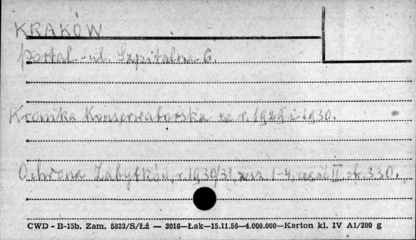 KRAKÓW
portal - ul. Szpitalna 6.
Kronika Konserwatorska za r. 1929 i 1930.
Ochrona Zabytków, r. 1930/31 zesz. 1-4, część II str. 330.
CWD - B-15b. Zam. 5823/S/Łż — 3016—Łak—15.11.56—4.000.000—Karton kl. IV A1/200 g